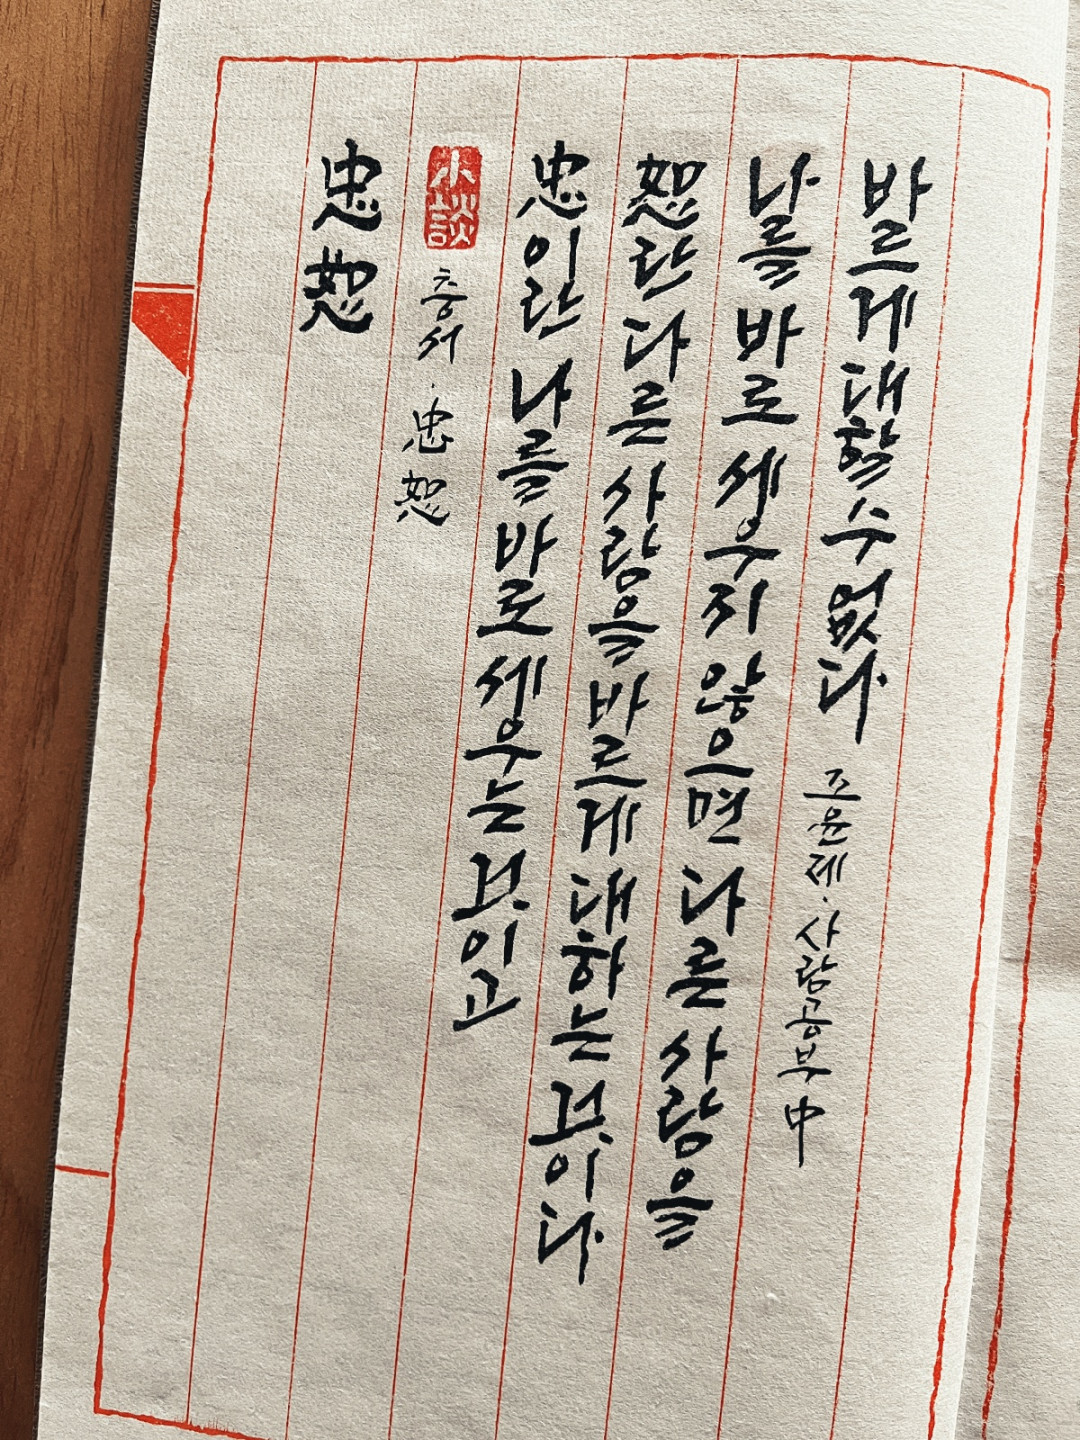 忠恕
小談
충서·忠恕
忠이란 나를 바로 세우는 것이고
恕란 다른 사람을 바르게 대하는 것이다
나를 바로 세우지 않으면 다른 사람을
바르게 대할 수 없다 조윤제·사람공부 中